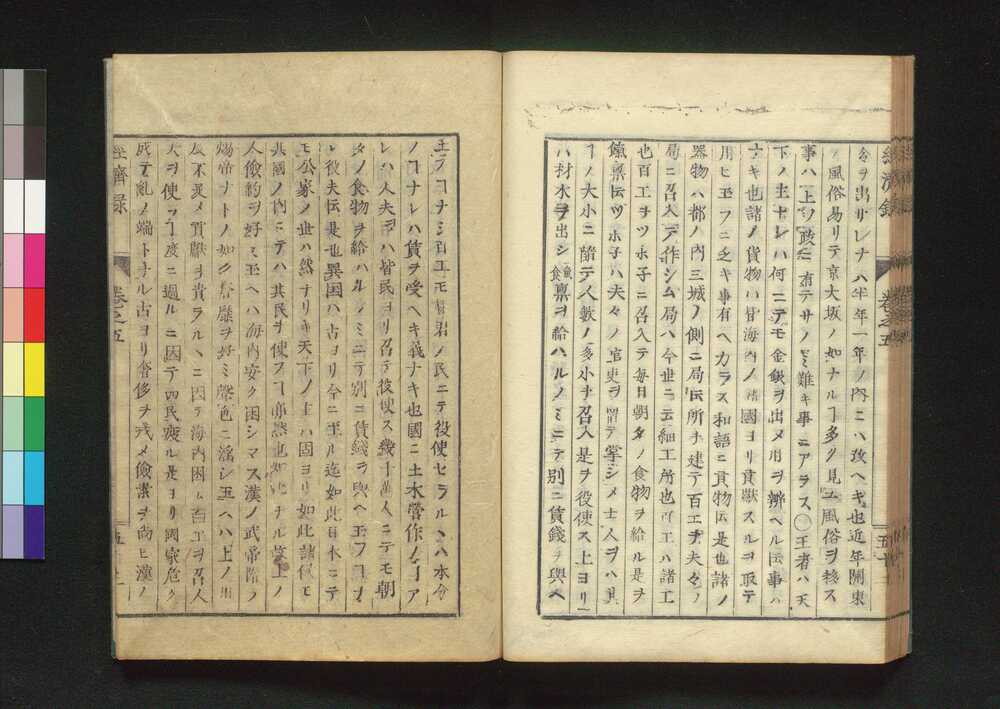 令ヲ出サレナハ半年一年ノ内ニハ改ヘキ也近年関東
ノ風俗易リテ京大坂ノ如ナルヿ多ク見ユ風俗ヲ移ス
事ハ上ノ政ニ有テサノミ難キ事ニアラス〇王者ハ天
下ノ主ナレハ何ニテモ金銀ヲ出メ用ヲ辨ヘル伝事ハ
ナキ也諸ノ貨物ハ皆海内ノ諸國ヨリ貢獻スルヲ取テ
用ヒ玉フニ乏キ事有ヘカラス和語ニ貢物伝是也諸ノ
器物ハ都ノ内三城ノ側ニ局伝所ヲ建テ百工ヲ夫々ノ
局ニ召入テ作シム局ハ今世ニ云細工所也百工ハ諸工
也百工ヲツホ子ニ召入テ毎日朝夕ノ食物ヲ給ル是ヲ
餼稟伝ツホ子ハ夫々ノ官吏ヲ置テ掌シメ士人ヲハ其
ヿノ大小ニ隨テ人數ノ多少ヲ召入是ヲ役使ス上ヨリ
ハ材木ヲ出シ餼食稟ヲ給ハルノミニテ別ニ賃錢ヲ與ヘ
玉フヿナシ百工モ皆君ノ民ニテ役使セラルヽハ本分
ノヿナレハ賃ヲ受ヘキ義ナキ也國ニ土木營作ノヿア
レハ人夫ヲハ皆民ヨリ召テ役使ス幾十萬人ニテモ朝
夕ノ食物ヲ給ハルノミニテ別ニ賃錢ヲ與ヘ玉フヿナ
レ役夫伝是也異国ハ古ヨリ今ニ至ル迄如此日本ニテ
モ公家ノ世ハ然ナリキ天下ノ主ハ固ヨリ如此諸侯モ
其國ノ内ニテハ其民ヲ使フヿ亦然也如此ナル故上ノ
人儉約ヲ好ミ玉ヘハ海内安ク困シマス漢ノ武帝隋ノ
煬帝ナトノ如ク奢靡ヲ好ミ聲色ニ淫シ玉ヘハ上ノ用
度不足メ貢獻ヲ責ラルヽニ因テ海内困ム百工ヲ召人
夫ヲ使フヿ度ニ過ルニ因テ四民疲ル是ヨリ國家危ク
成テ亂ノ端トナル古ヨリ奢侈ヲ戒メ儉素ヲ尚ヒ漢ノ
經濟録
卷之五